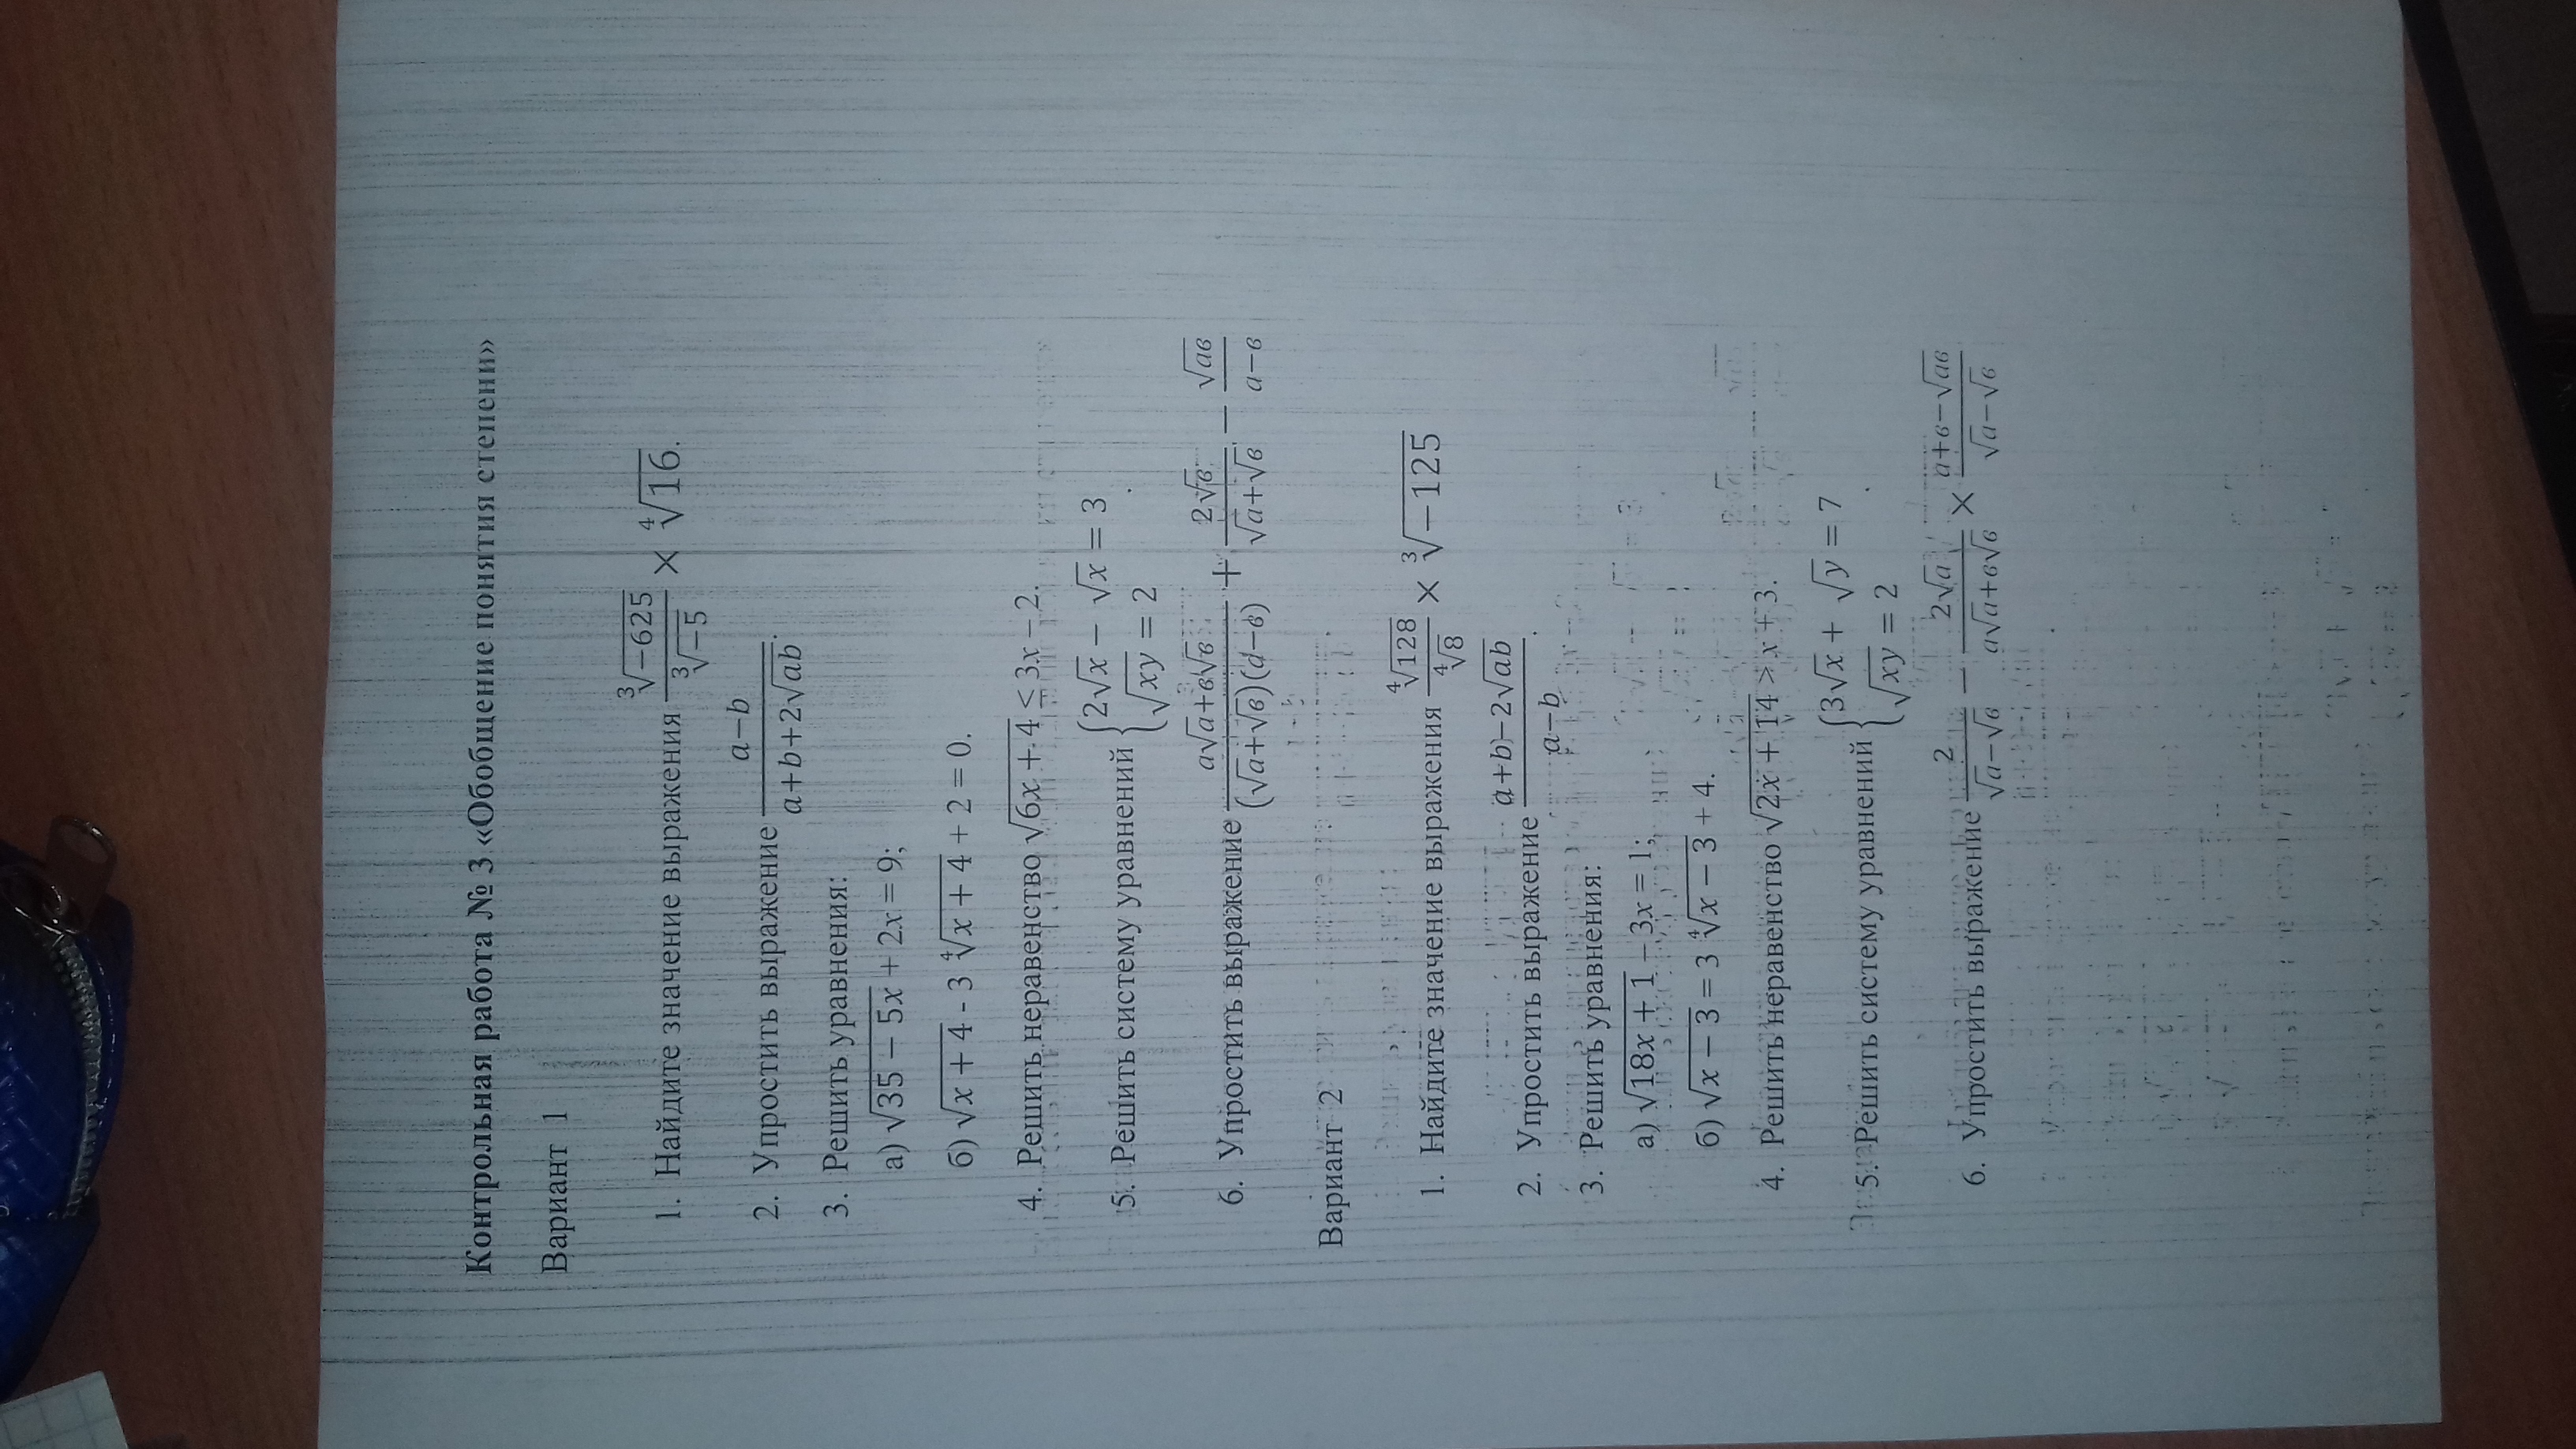 Контрольная работа № 3 «Обобщение понятия степени»
Вариант 1
1. Найдите значение выражения ∛(−625)/∛(−5) × ∜16.
2. Упростить выражение (a−b)/(a+b+2√(ab)).
3. Решить уравнения:
а) √(35 − 5x) + 2x = 9;
б) √(x + 4) - 3 ∜(x + 4) + 2 = 0.
4. Решить неравенство √(6x + 4) ≤ 3x − 2.
5. Решить систему уравнений {2√x − √x = 3; √(xy) = 2.
6. Упростить выражение (а√а+в√в)/((√а+√в)(а−в)) + 2√в/(√а+√в) − √(ав)/(а−в)
Вариант 2
1. Найдите значение выражения ∜128/∜8 × ∛(−125)
2. Упростить выражение (a+b−2√(ab))/(a−b).
3. Решить уравнения:
а) √(18x + 1) − 3x = 1;
б) √(x − 3) = 3 ∜(x − 3) + 4.
4. Решить неравенство √(2x + 14) > x + 3.
5. Решить систему уравнений {3√x + √y = 7; √(xy) = 2.
6. Упростить выражение 2/(√а−√в) − 2√а/(а√а+в√в) × (а+в−√(ав))/(√а−√в)